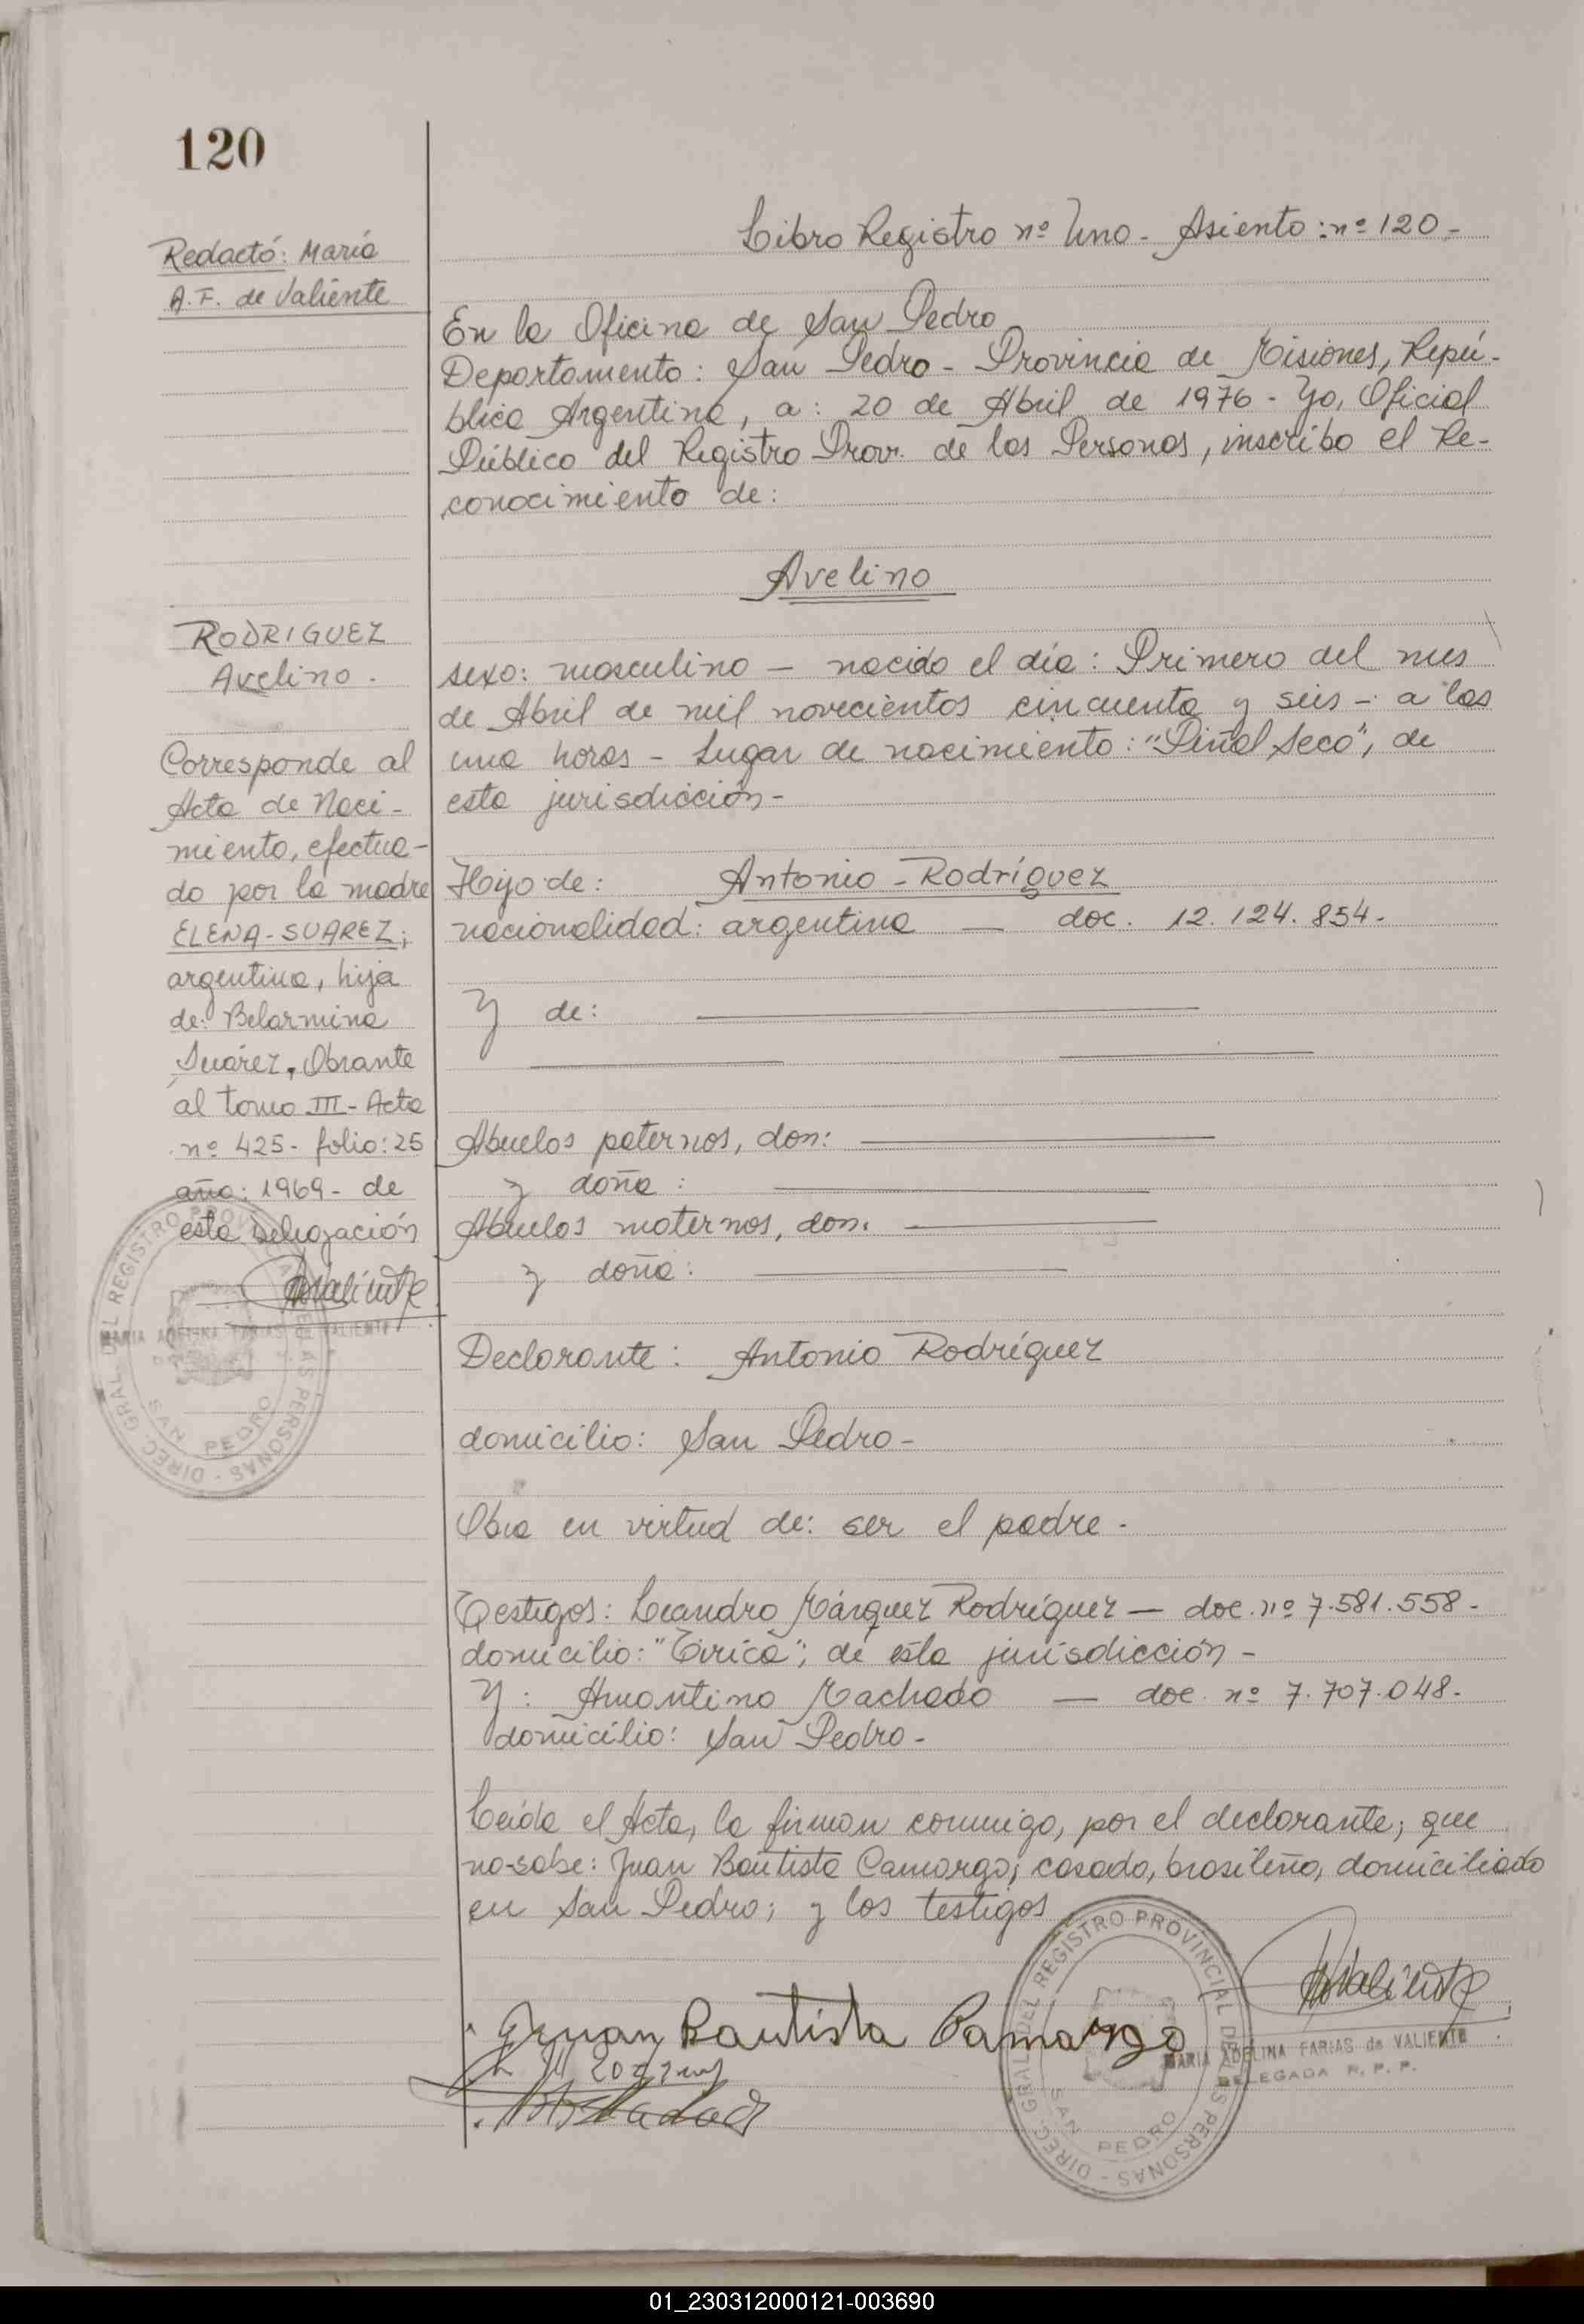 120
Redactó: María
A.F. de Valiente
RODRIGUEZ
Avelino.
Corresponde al
Acta de Naci-
miento, efectua-
do por la madre
ELENA-SUAREZ;
argentina, hija
de: Belarmina
Suárez. Obrante
al tomo III- Acta
nº 425- folio: 25
año: 1969- de
esta Delegación
Valiente
MARIA ADELINA FARIAS de VALIENTE
DIREC. GRAL. DEL REGISTRO PROVINCIAL DE LAS PERSONAS -
SAN PEDRO
Libro Registro nº Uno- Asiento: nº 120-
En la Oficina de San Pedro
Departamento: San Pedro- Provincia de Misiones, Repú-
blica Argentina, a: 20 de Abril de 1976- Yo, Oficial
Público del Registro Prov. de las Personas, inscribo el Re-
conocimiento de:
Avelino
sexo: masculino - nacido el día: Primero del mes
de Abril de mil novecientos cincuenta y seis - a las
una horas - Lugar de nacimiento: "Piñal Seco", de
esta jurisdicción-
Hijo de: Antonio-Rodríguez
nacionalidad: argentina — doc. 12.124.854-
Y de:
Abuelos paternos, don:
y doña:
Abuelos maternos, don:
y doña:
Declarante: Antonio Rodríguez
domicilio: San Pedro-
Obra en virtud de: ser el padre-
Testigos: Leandro Márquez Rodríguez — doc. nº 7.581.558-
domicilio: "Tirica"; de esta jurisdicción-
Y: Amantino Machado — doc. nº 7.707.048-
domicilio: San Pedro-
Leída el Acta, la firman conmigo, por el declarante; que
no-sabe: Juan Bautista Camargo; casado, brasileño, domiciliado
en San Pedro; y los testigos
Valiente
Juan Bautista Camargo
MARIA ADELINA FARIAS de VALIENTE
DELEGADA R. P. P.
DIREC. GRAL. DEL REGISTRO PROVINCIAL DE LAS PERSONAS -
SAN PEDRO
01_230312000121-003690